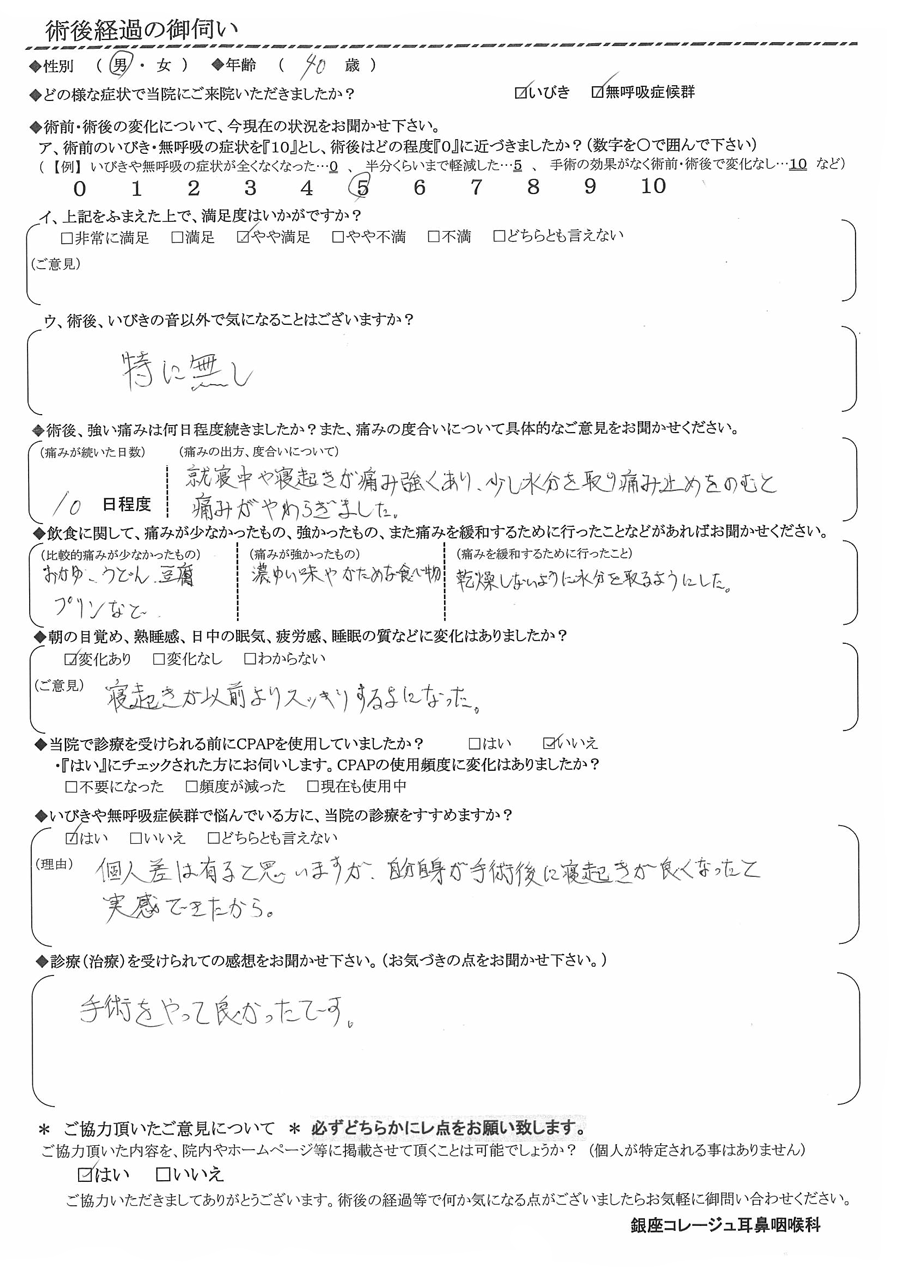 術後経過の御伺い
◆性別 ( 男 ・ 女 ) ◆年齢 ( 40 歳 )
◆どの様な症状で当院にご来院いただきましたか? ☑いびき ☑無呼吸症候群
◆術前・術後の変化について、今現在の状況をお聞かせ下さい。
ア、術前のいびき・無呼吸の症状を『10』とし、術後はどの程度『0』に近づきましたか?(数字を〇で囲んで下さい)
(【例】 いびきや無呼吸の症状が全くなくなった…0 、 半分くらいまで軽減した…5 、 手術の効果がなく術前・術後で変化なし…10 など)
0 1 2 3 4 5 6 7 8 9 10
イ、上記をふまえた上で、満足度はいかがですか?
□非常に満足 □満足 ☑やや満足 □やや不満 □不満 □どちらとも言えない
(ご意見)
ウ、術後、いびきの音以外で気になることはございますか?
特に無し
◆術後、強い痛みは何日程度続きましたか?また、痛みの度合いについて具体的なご意見をお聞かせください。
(痛みが続いた日数) (痛みの出方、度合いについて)
就寝中や寝起きが痛み強くあり、少し水分を取り痛み止めをのむと
10 日程度 痛みがやわらぎました。
◆飲食に関して、痛みが少なかったもの、強かったもの、また痛みを緩和するために行ったことなどがあればお聞かせください。
(比較的痛みが少なかったもの) (痛みが強かったもの) (痛みを緩和するために行ったこと)
おかゆ、うどん、豆腐 濃ゆい味やかためな食べ物 乾燥しないように水分を取るようにした。
プリンなど
◆朝の目覚め、熟睡感、日中の眠気、疲労感、睡眠の質などに変化はありましたか?
☑変化あり □変化なし □わからない
(ご意見) 寝起きが以前よりスッキリするよになった。
◆当院で診療を受けられる前にCPAPを使用していましたか? □はい ☑いいえ
・『はい』にチェックされた方にお伺いします。CPAPの使用頻度に変化はありましたか?
□不要になった □頻度が減った □現在も使用中
◆いびきや無呼吸症候群で悩んでいる方に、当院の診療をすすめますか?
☑はい □いいえ □どちらとも言えない
(理由) 個人差は有ると思いますが、自分自身が手術後に寝起きが良くなったと
実感できたから。
◆診療(治療)を受けられての感想をお聞かせ下さい。(お気づきの点をお聞かせ下さい。)
手術をやって良かったでーす。
＊ ご協力頂いたご意見について ＊ 必ずどちらかにレ点をお願い致します。
ご協力頂いた内容を、院内やホームページ等に掲載させて頂くことは可能でしょうか? (個人が特定される事はありません)
☑はい □いいえ
ご協力いただきましてありがとうございます。術後の経過等で何か気になる点がございましたらお気軽に御問い合わせください。
銀座コレージュ耳鼻咽喉科